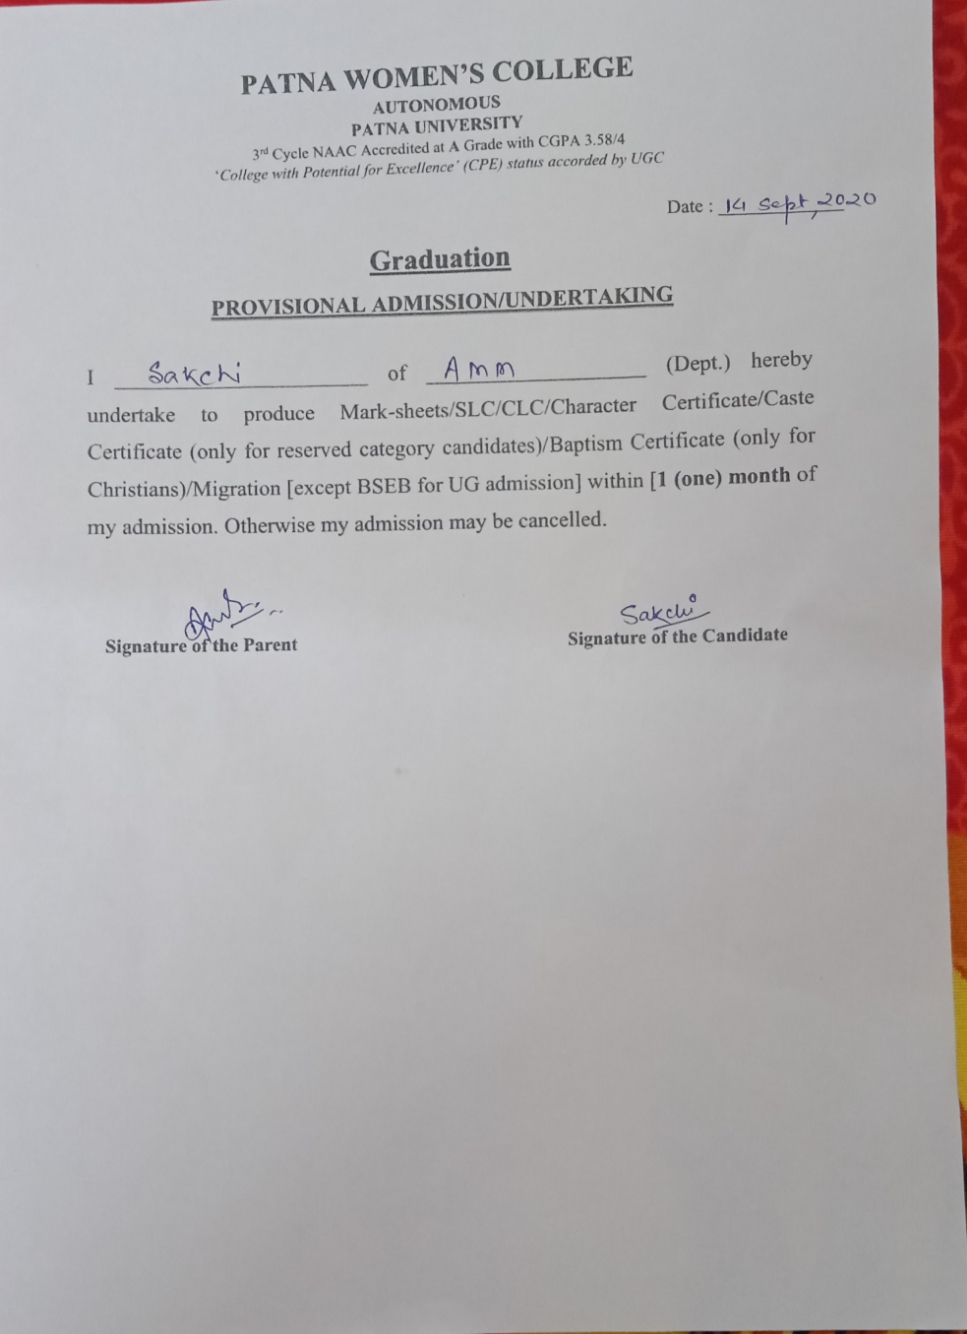 PATNA WOMEN'S COLLEGE
AUTONOMOUS
PATNA UNIVERSITY
3rd Cycle NAAC Accredited at A Grade with CGPA 3.58/4
'College with Potential for Excellence' (CPE) status accorded by UGC
Date : 14 Sept, 2020
Graduation
PROVISIONAL ADMISSION/UNDERTAKING
I Sakchi of Amm (Dept.) hereby
undertake to produce Mark-sheets/SLC/CLC/Character Certificate/Caste
Certificate (only for reserved category candidates)/Baptism Certificate (only for
Christians)/Migration [except BSEB for UG admission] within [1 (one) month of
my admission. Otherwise my admission may be cancelled.
Sakchi
Signature of the Parent Signature of the Candidate